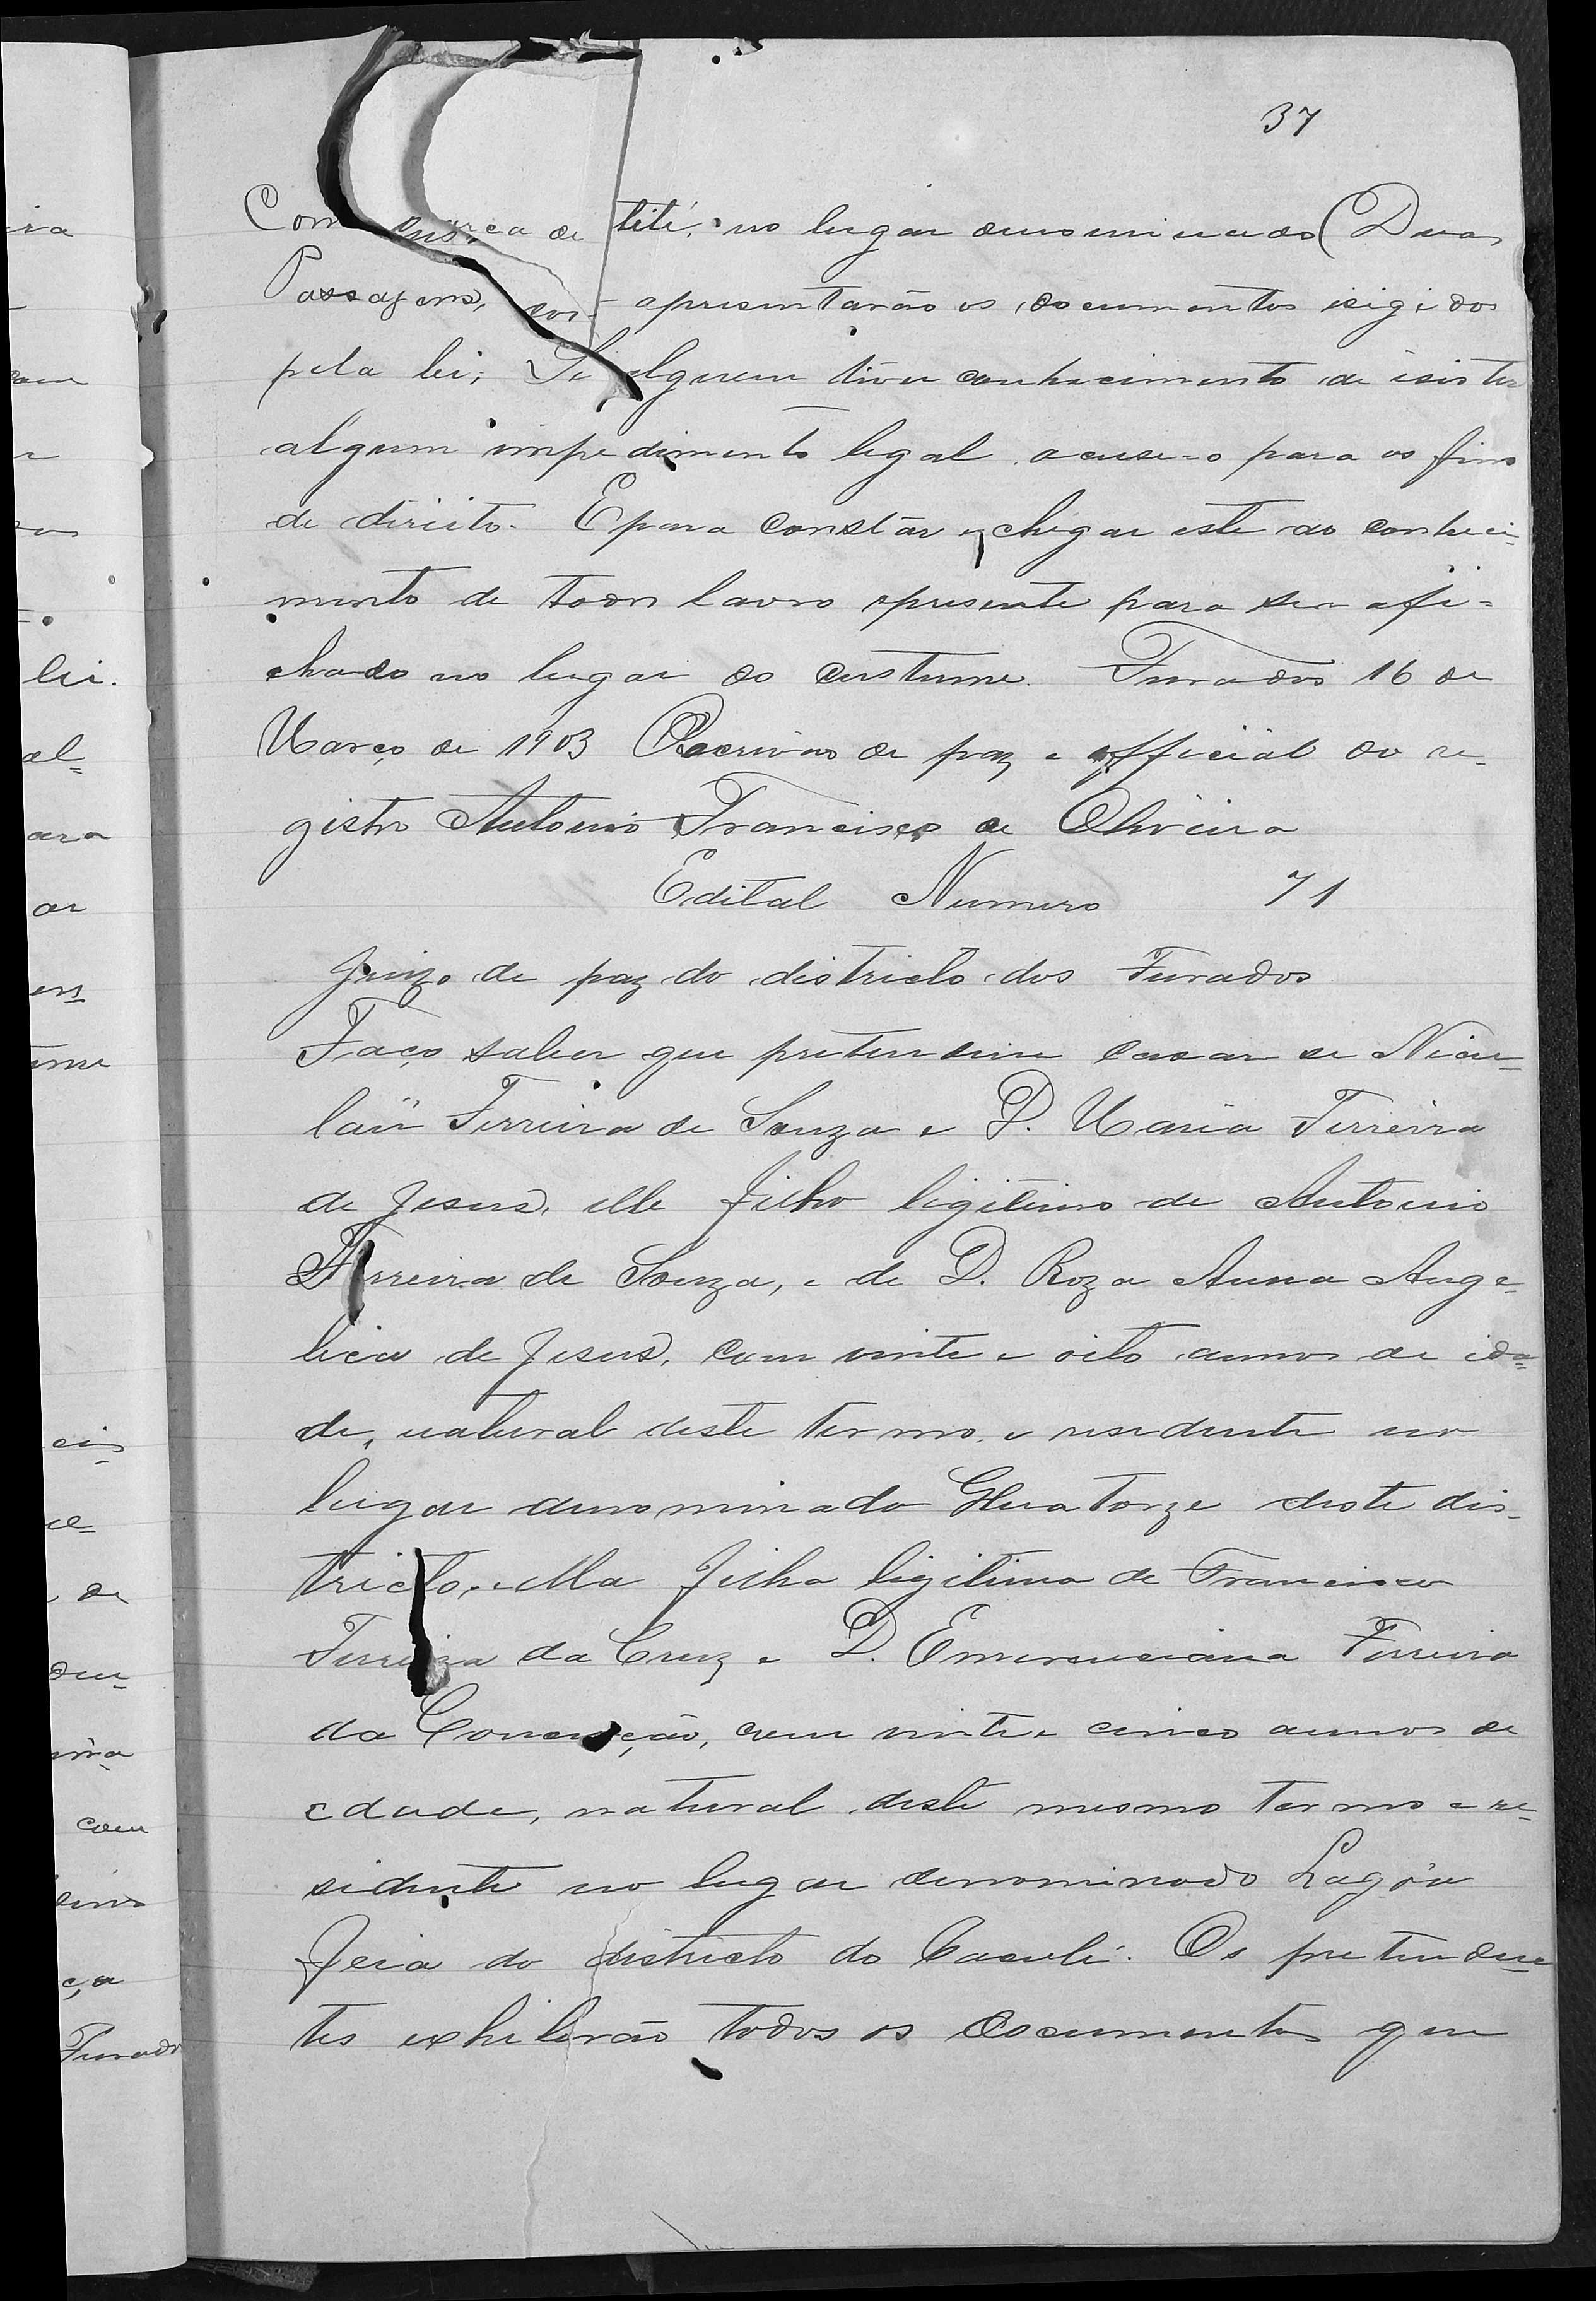 37
Com arca de tité, no lugar denominado (Duas
Passagens, apresentarão os documentos isigidos
pela lei; Se alguem tiver conhecimento de isister
algum impedimento legal acuse-o para os fins
de direito. E para constar e chegar este ao conheci-
mento de todos lavro opresente para ser afi-
chado no lugar do custume. Furados 16 de
Março de 1903 O escrivão de paz e official do re-
gistro Antonio Francisco de Oliveira
Edital Numero 71
Juizo de paz do districto dos Furados
Faço saber que pretendem casar se Nicu-
laú Ferreira de Souza e D. Maria Ferreira
de Jesus, elle filho ligitimo de Antonio
Ferreira de Souza, e de D. Roza Anna Ange-
lica de Jesus, com vinte e oito annos de ida-
de, natural deste termo, e residente no
lugar denominado deste dis-
tricto, ella filha ligitima de Francisco
Ferreira da Cruz e D. Emerenciana Ferreira
da Conceição, com vinte e cinco annos de
edade, natural deste mesmo termo e re-
sidente no lugar denominado Lagôa
feia do districto do Caculé. Os pretenden-
tes exhibirão todos os documentos que
lei.
al-
ara
ar
en
ume
cin
de
den-
com
ça
Furados